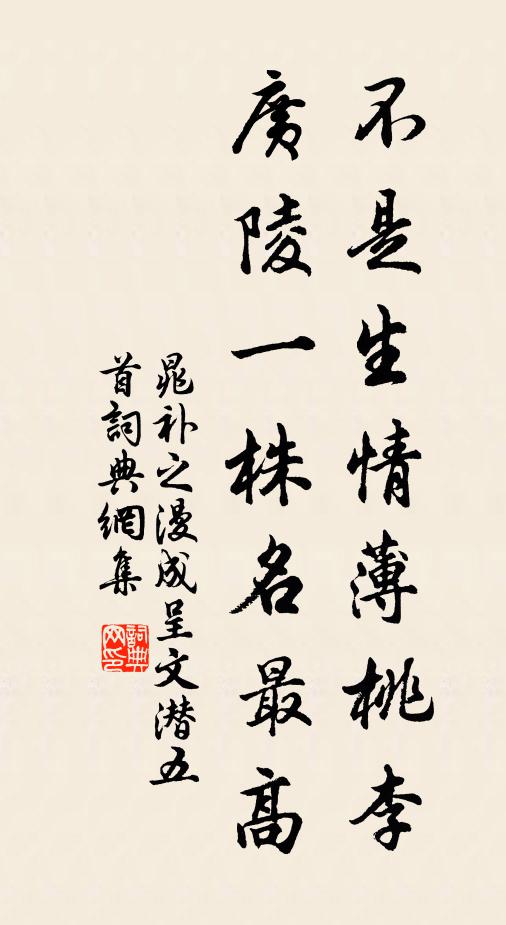 不是生情薄桃李
廣陵一株名最高
晁补之漫成呈文潜五
首詞典網集
詞典网印